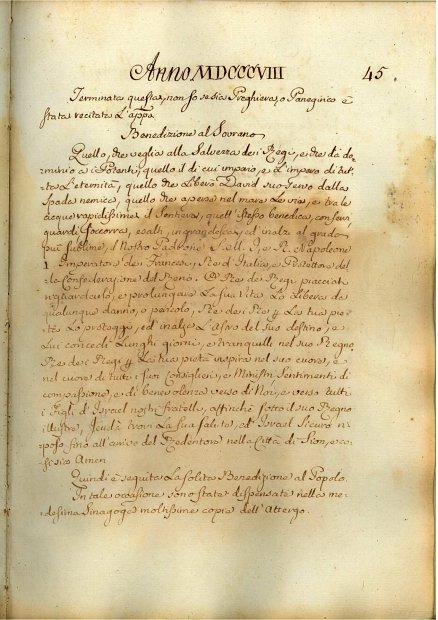 Anno MDCCCVIII 45.
Terminata questa, non so se sia Preghiera, o Panegirico è
stata recitata L'appa
Benedizione al Sovrano
Quello, che veglia alla Salvezza dei Regi, e che dà do-
minio ai Potenti; quello il di cui imparo, e L'impero di tut-
ta L'eternità, quello che Liberò David suo Servo dalla
Spada nemica, quello che aperse nel mare La via, e tra le
acque rapidissime il Sentiero, quell'istesso benedica, conservi
guardi Soccorra, esalti, ingrandisca, ed inalzi al grado
più Sublime, il Nostro Padrone S. M. I. e R. Napoleone
I. Imperatore de Francesi, Re d'Italia, e Protettore del-
la Confederazione del Reno. O Re dei Regi piacciati
riguardarlo, e prolungare La sua Vita. Lo Libera da
qualunque danno, e pericolo, Re dei Re p La tua pie-
tà Lo proteggi, ed inalza L'Astro del suo destino, e
Lui concedi Lunghi giorni, e tranquilli nel suo Regno
Re de Regi p La tua pietà inspira nel suo cuore, e
nel cuore di tutti i suoi Consiglieri, e Ministri Sentimenti di
compassione, e di benevolenza verso di Noi, e verso tutti
i Figli d'Israel nostri fratelli, affinchè sotto il suo Regno
illustre, Jeudà trovi La sua Salute, ed Israel Sicuro ri-
poso fino all'arrivo del Redentore nella Città di Sion, e co-
sì sia Amen
Quindi è seguita La solita Benedizione al Popolo.
In tale occasione sono state dispensate nella me-
desima Sinagoga moltissime copie dell'Attergo.